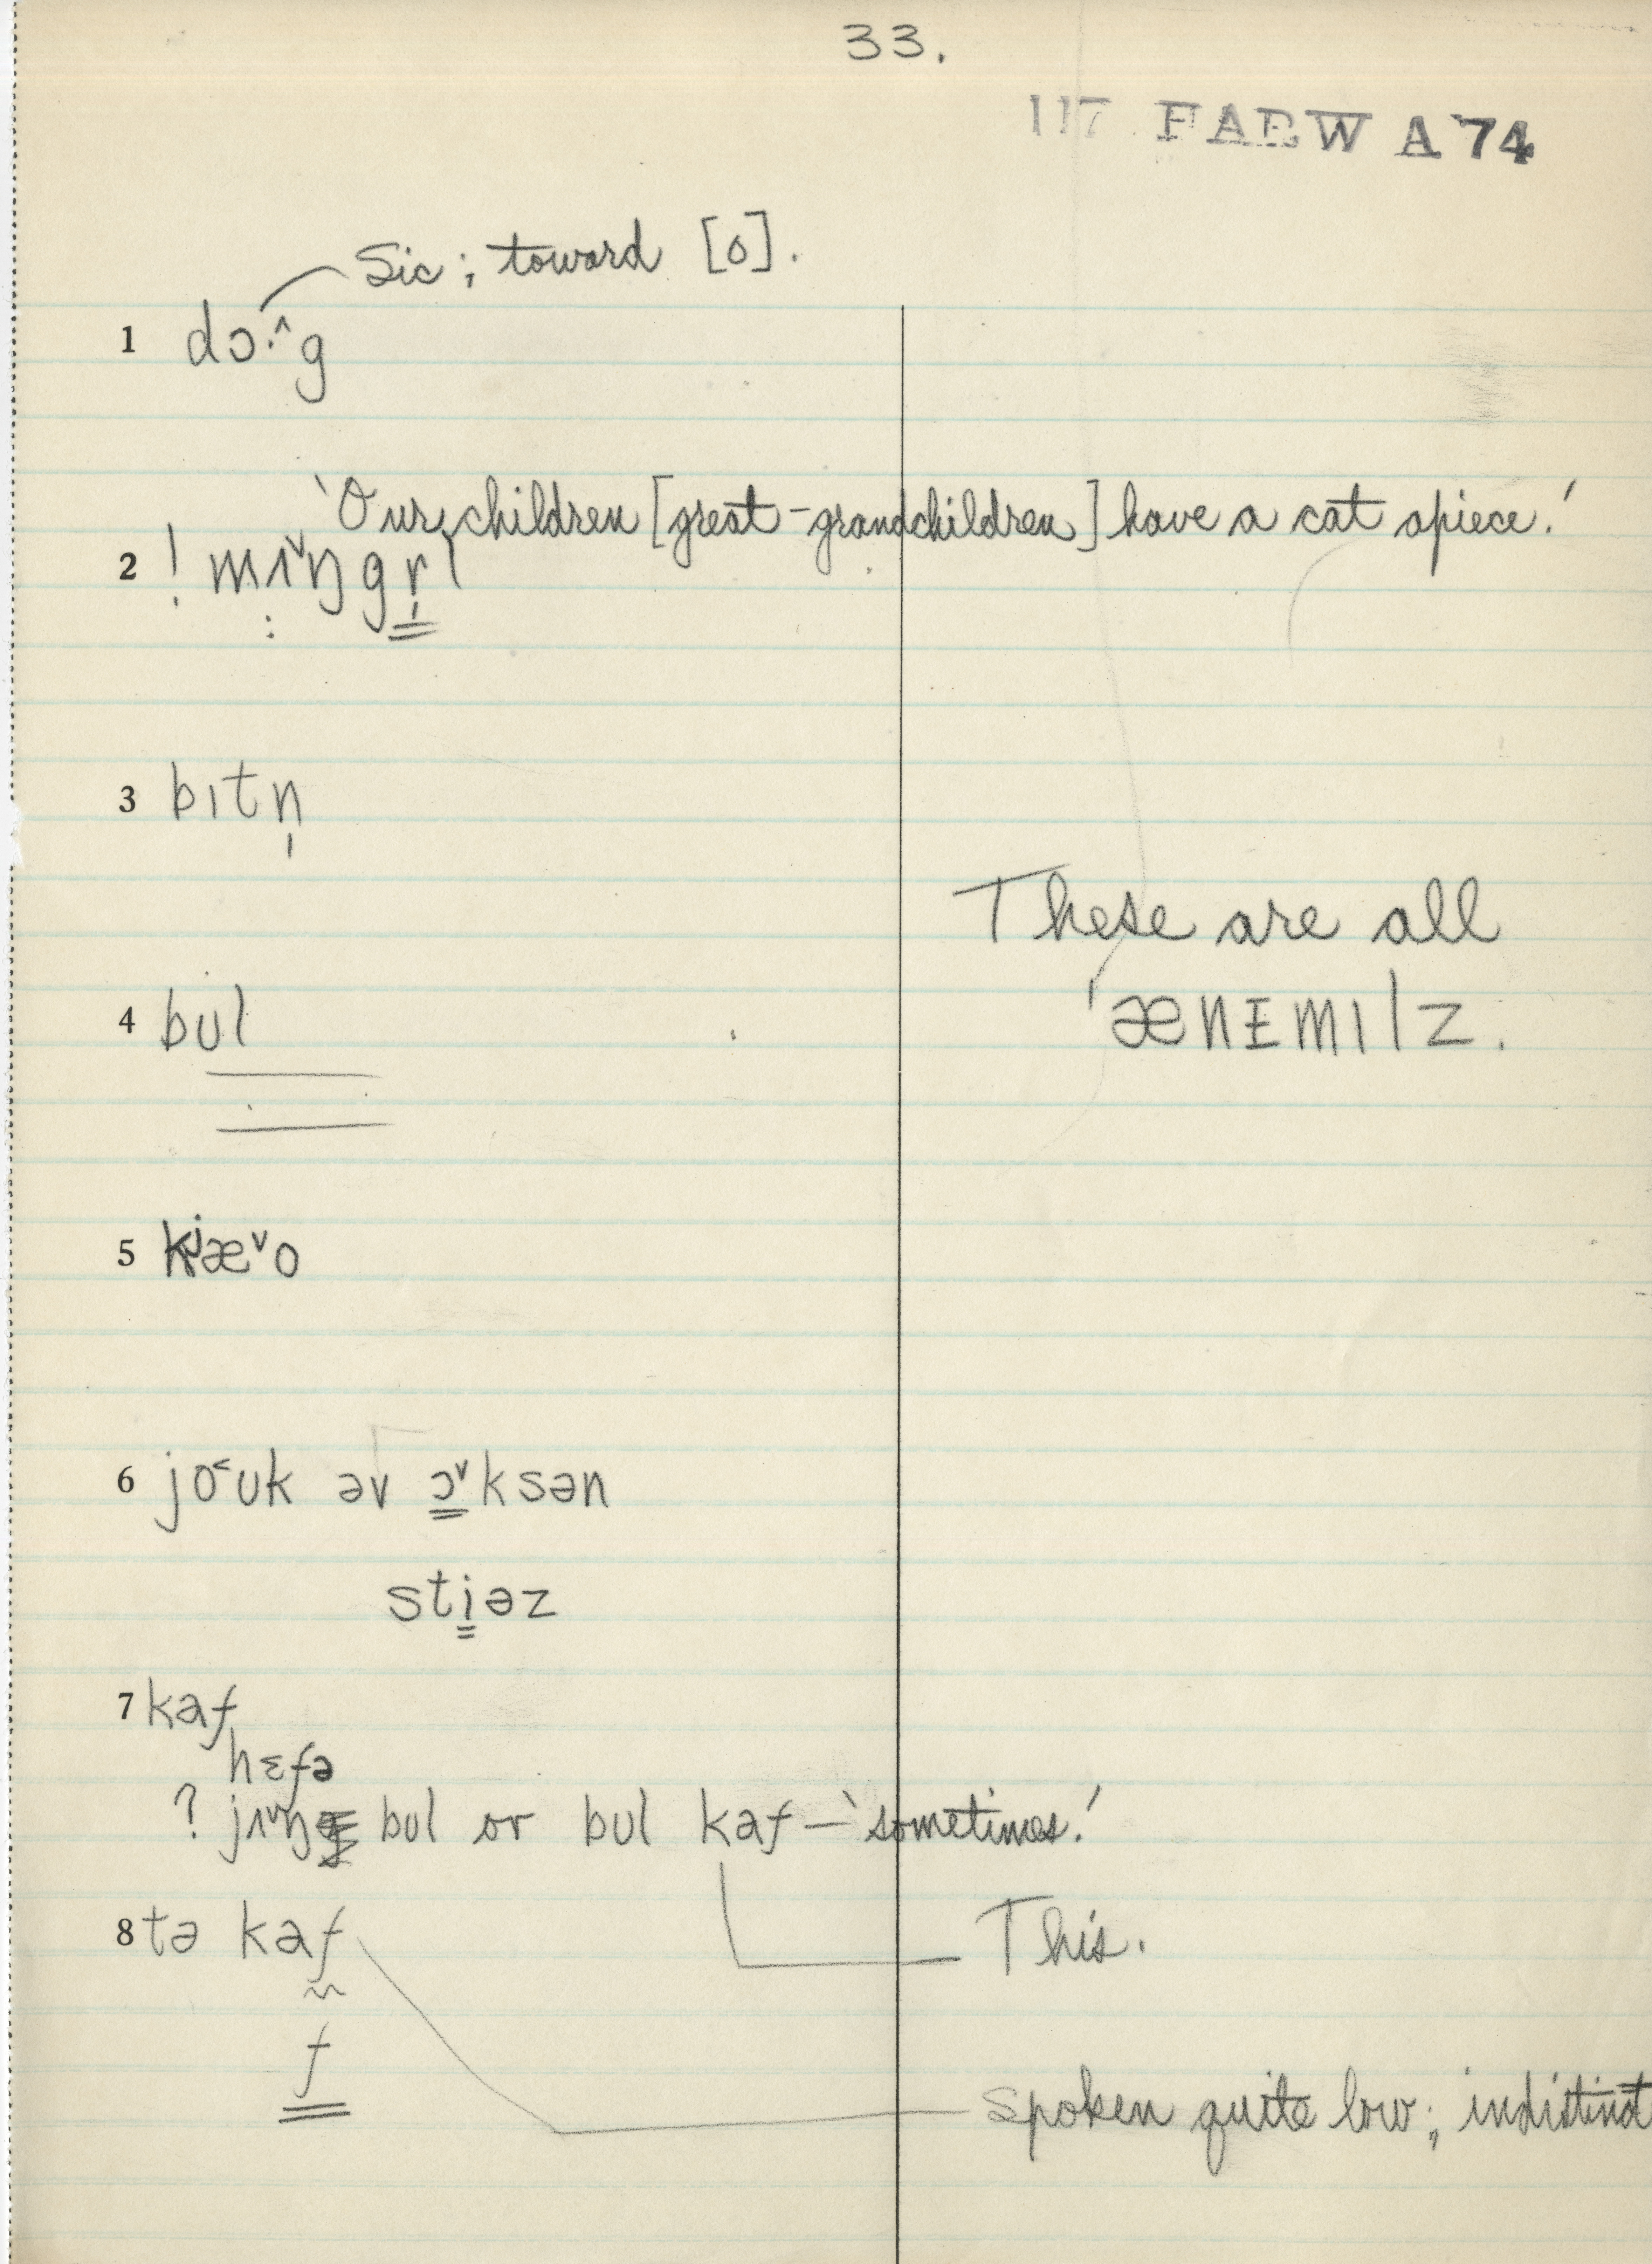 33.
117 FARW A 74
Sic; toward [o].
1 dɔ·^g
'Our children [great-grandchildren] have a cat apiece.'
2 ! mɪˇŋgr̩l
3 bɪtn̩
These are all
4 bul
'ænɪmɪlz.
5 kʲæˇo
6 jo˂uk əv ɔˇksən
stiəz
7 kaf
hɛfə
? jɪˇŋg bul or bul kaf – 'sometimes.'
8 tə kaf
This.
f
spoken quite low; indistinct